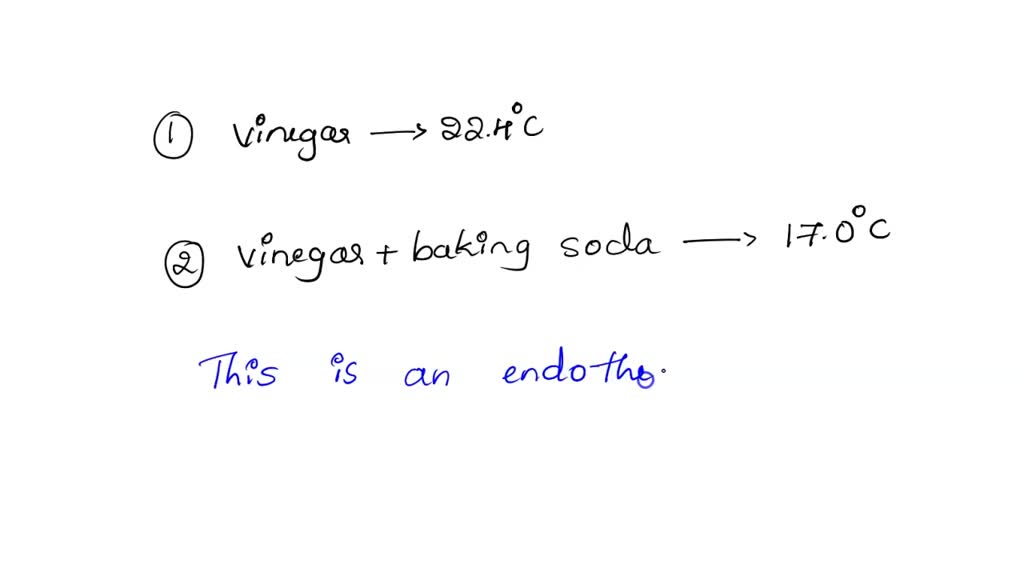 ① vinegar → 22.4°C
② vinegar + baking soda → 17.0°C
This is an endothe